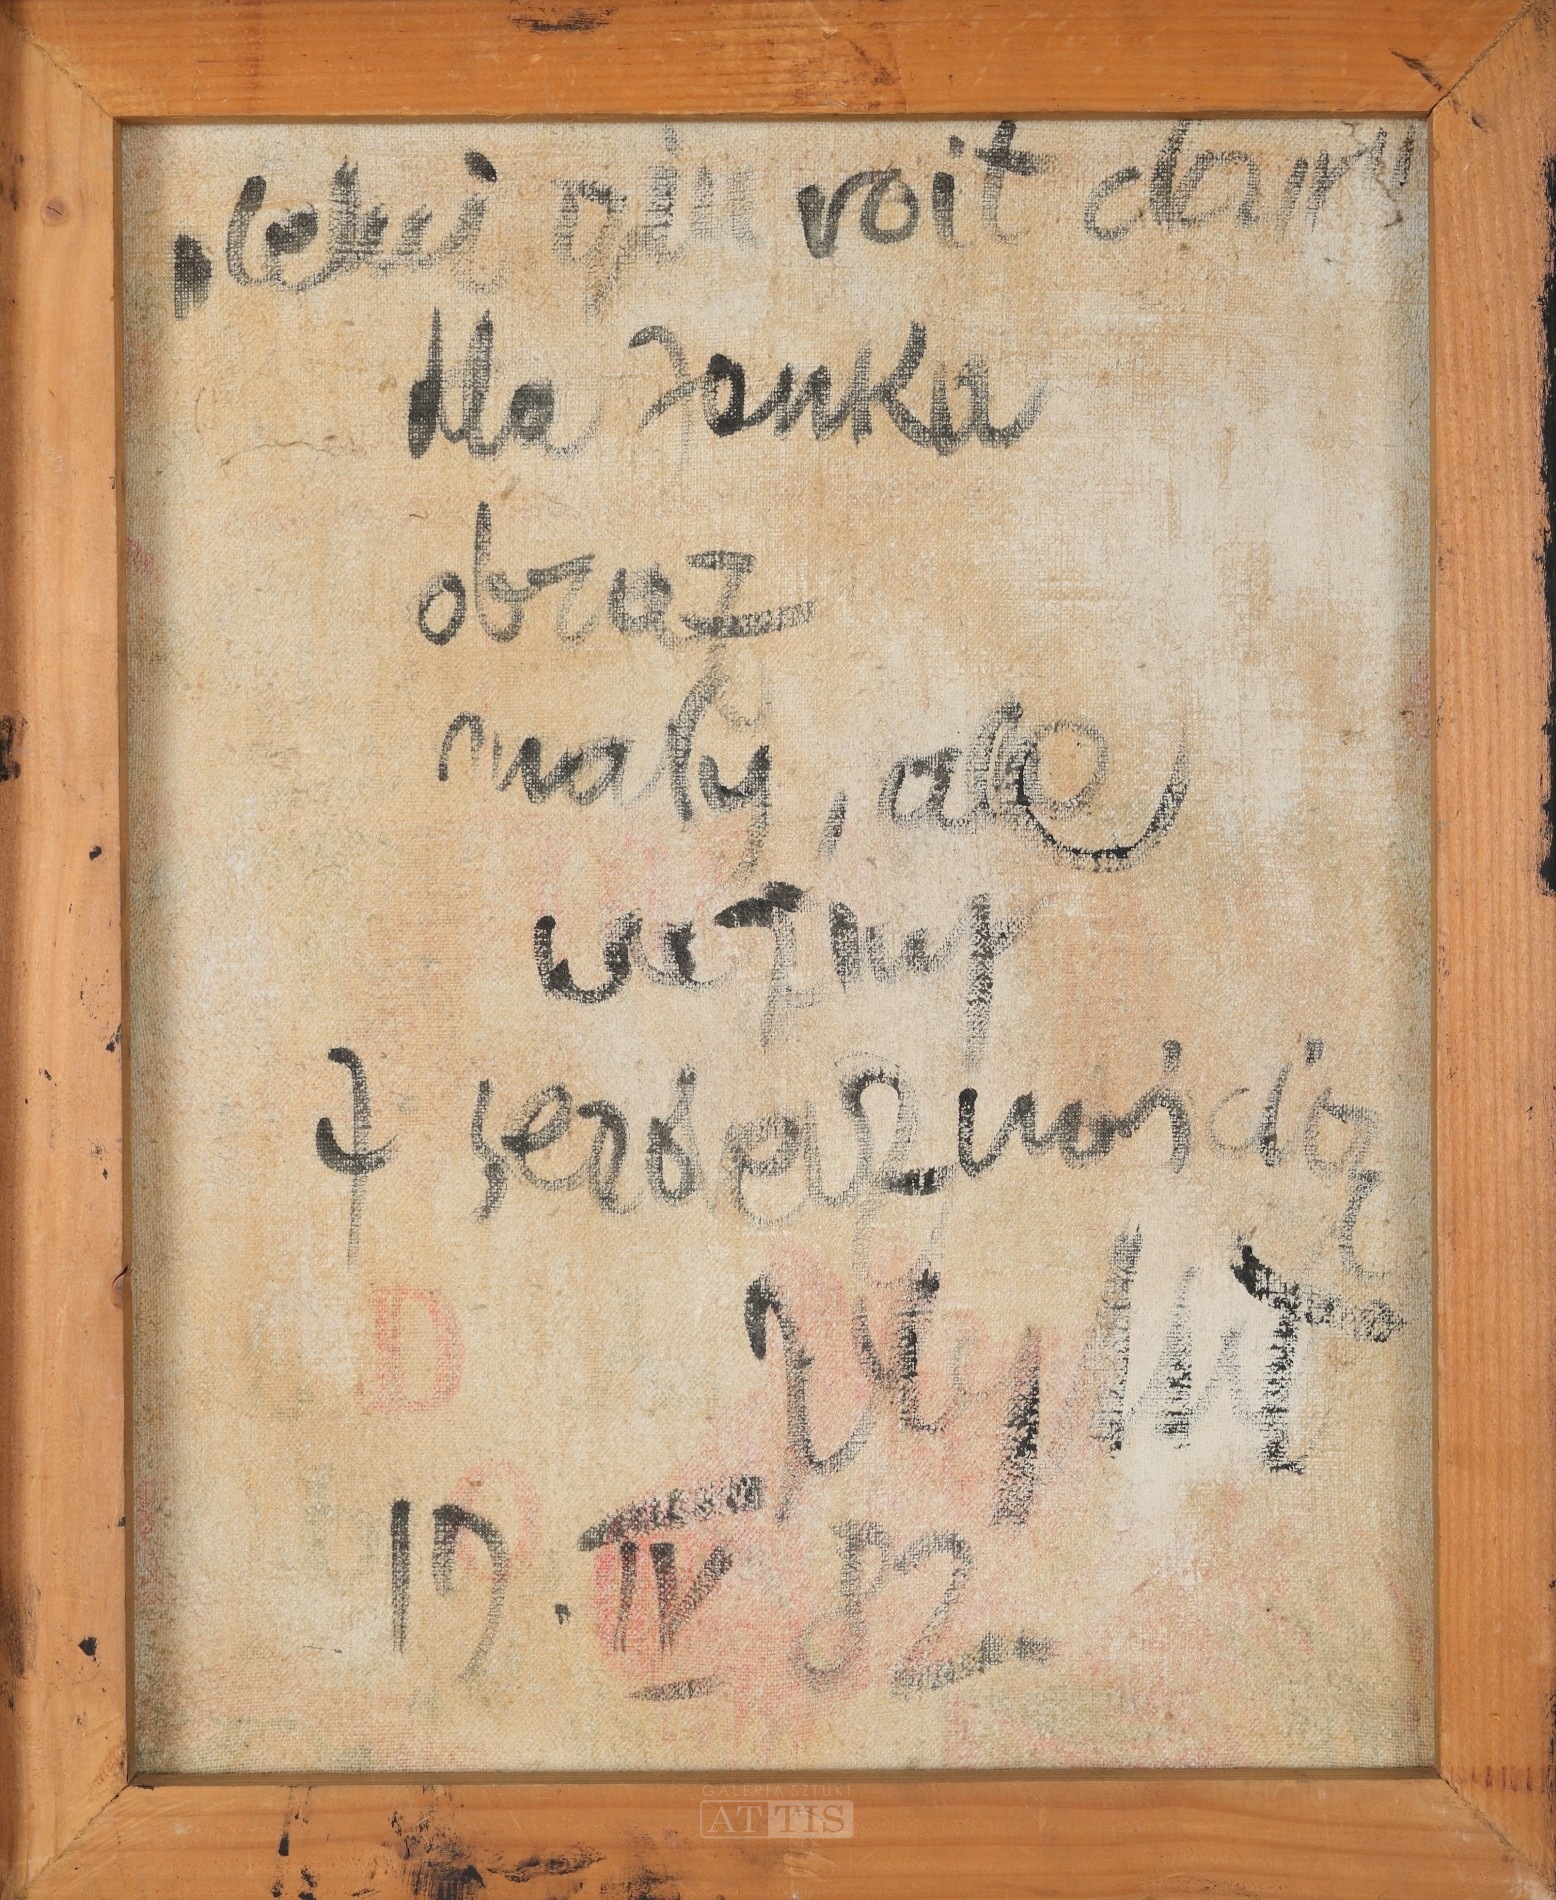 „celui qui voit dans"
dla Janka
obraz
mały, ale
ważny
z serdecznością
17. IV 82
GALERIA SZTUKI
ATTIS